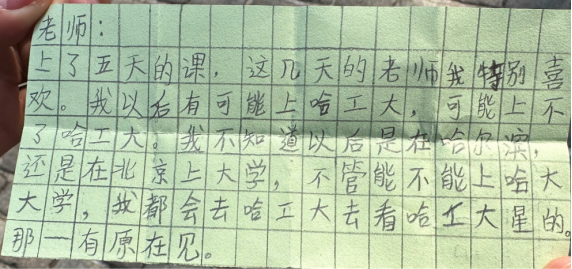 老师：
上了五天的课，这几天的老师我特别喜
欢。我以后有可能上哈工大，可能上不
了哈工大。我不知道以后是在哈尔滨，
还是在北京上大学，不管能不能上哈大
大学，我都会去哈工大去看哈工大星的。
那一有原在见。